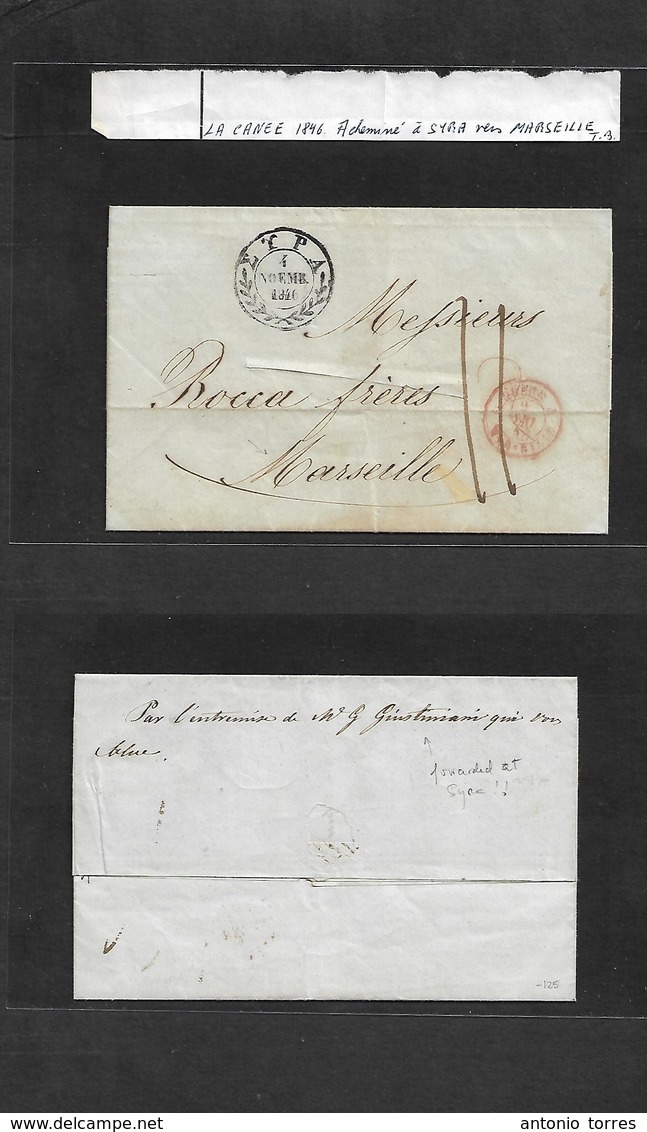 LA CANEE 1846. Acheminé à SYRA vers MARSEILLE
T.B.
ΣΥΡΑ
4
ΝΟΕΜΒ.
1846
Messieurs
Rocca frères
Marseille
Par l'entremise de Mr G Giustiniani qui vous
salue.
forwarded at
Syra !!
-125
www.delcampe.net
antonio torres